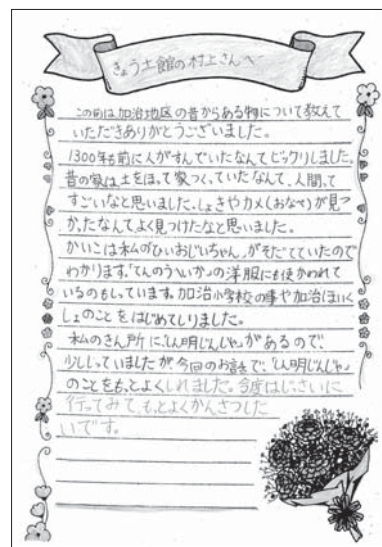 きょう土館の村上さんへ
この前は加治地区の昔からある物について教えて
いただきありがとうございました。
1300年も前に人がすんでいたなんてビックリしました。
昔の家は土をほって家つくっていたなんて、人間って
すごいなと思いました。しょきやカメ(おなべ)が見つ
かったなんてよく見つけたなと思いました。
かいこは私の「ひいおじいちゃん」がそだてていたので
わかります。「てんのうへいか」の洋服にも使かわれて
いるのもしっています。加治小学校の事や加治ほいく
しょのことをはじめてしりました。
私のきん所に「しん明じんじゃ」があるので、
少ししっていましたが、今回のお話で、「しん明じんじゃ」
のことをもっとよくしれました。今度はじっさいに
行ってみて、もっとよくかんさつした
いです。